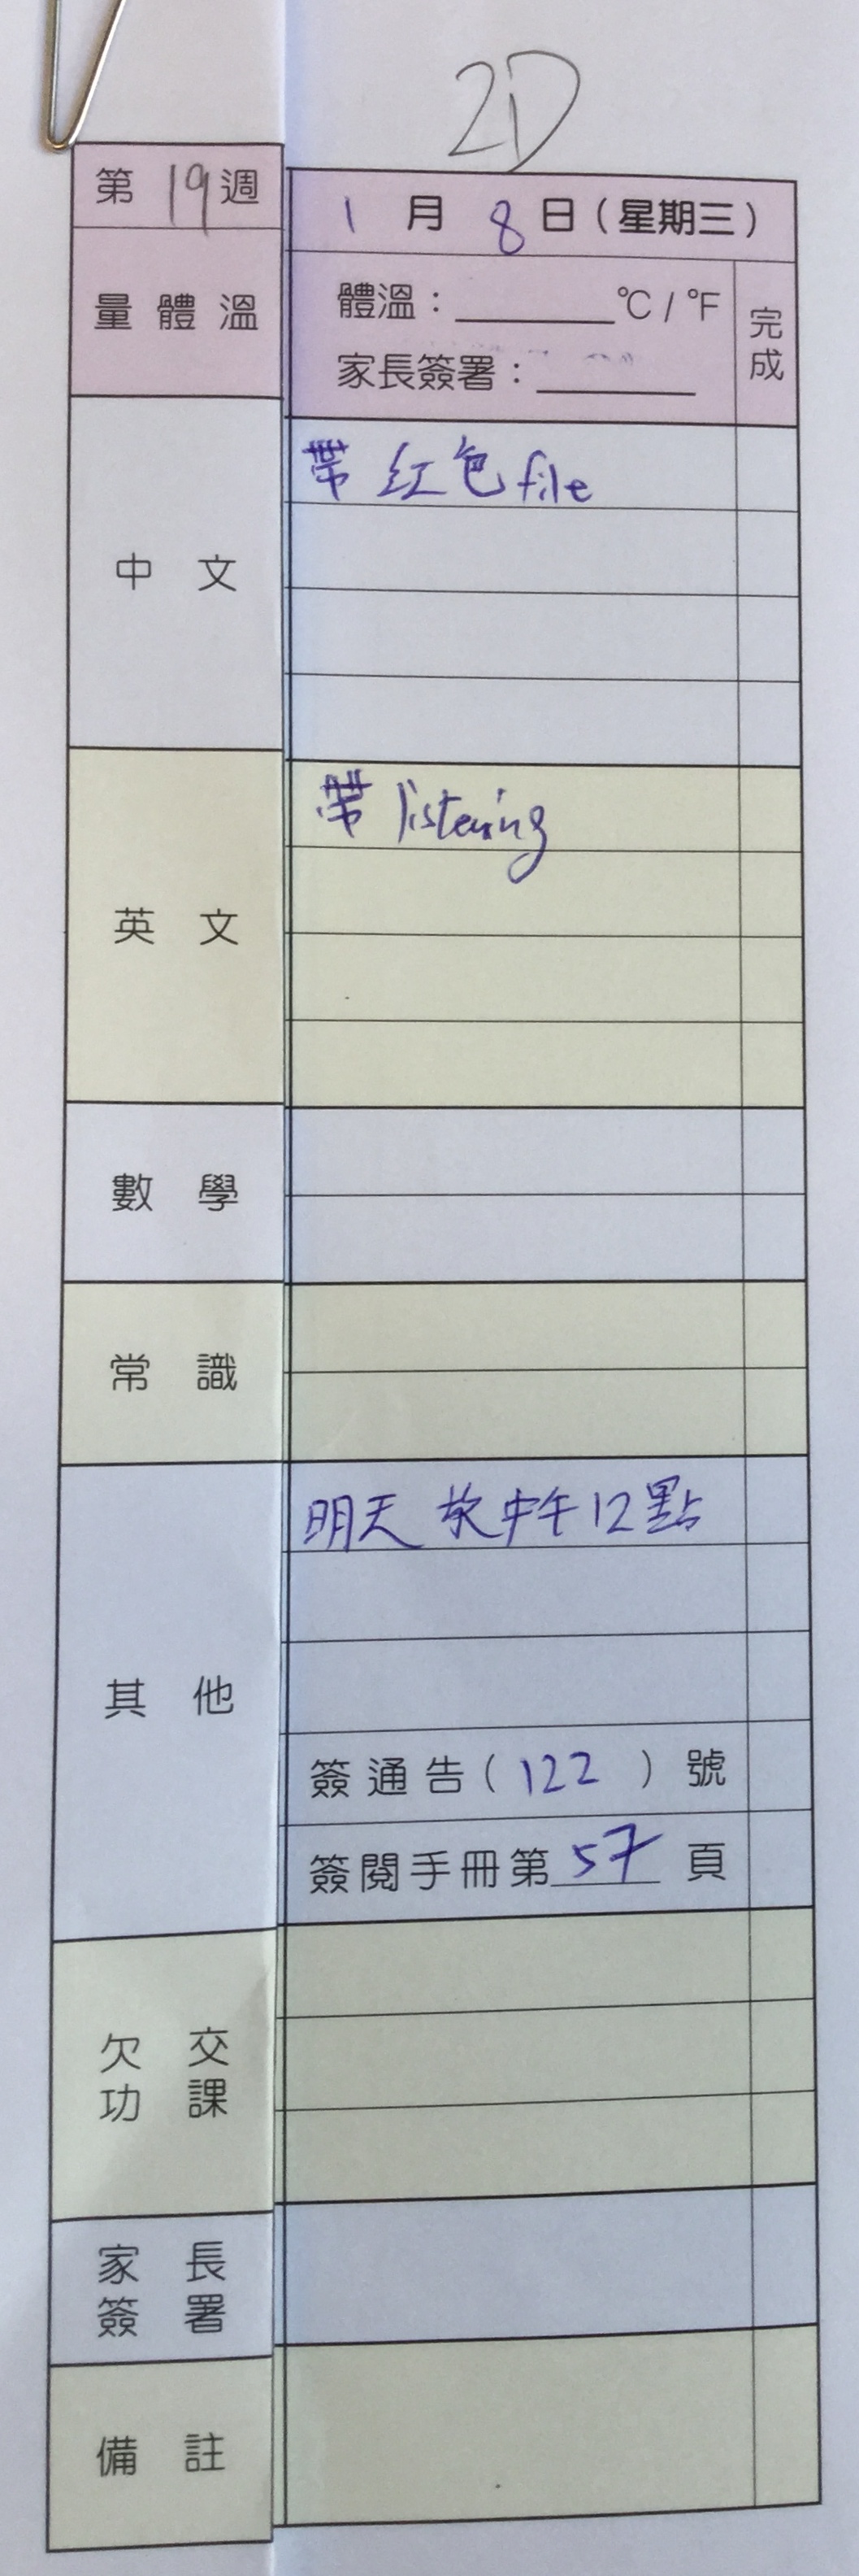 2D
第 19 週
1 月 8 日 (星期三)
量體溫
體溫：______°C / °F
家長簽署：______
完成
中文
帶 红色 file
英文
帶 listening
數學
常識
其他
明天 放中午12點
簽通告 ( 122 ) 號
簽閱手冊第 57 頁
欠交
功課
家長
簽署
備註